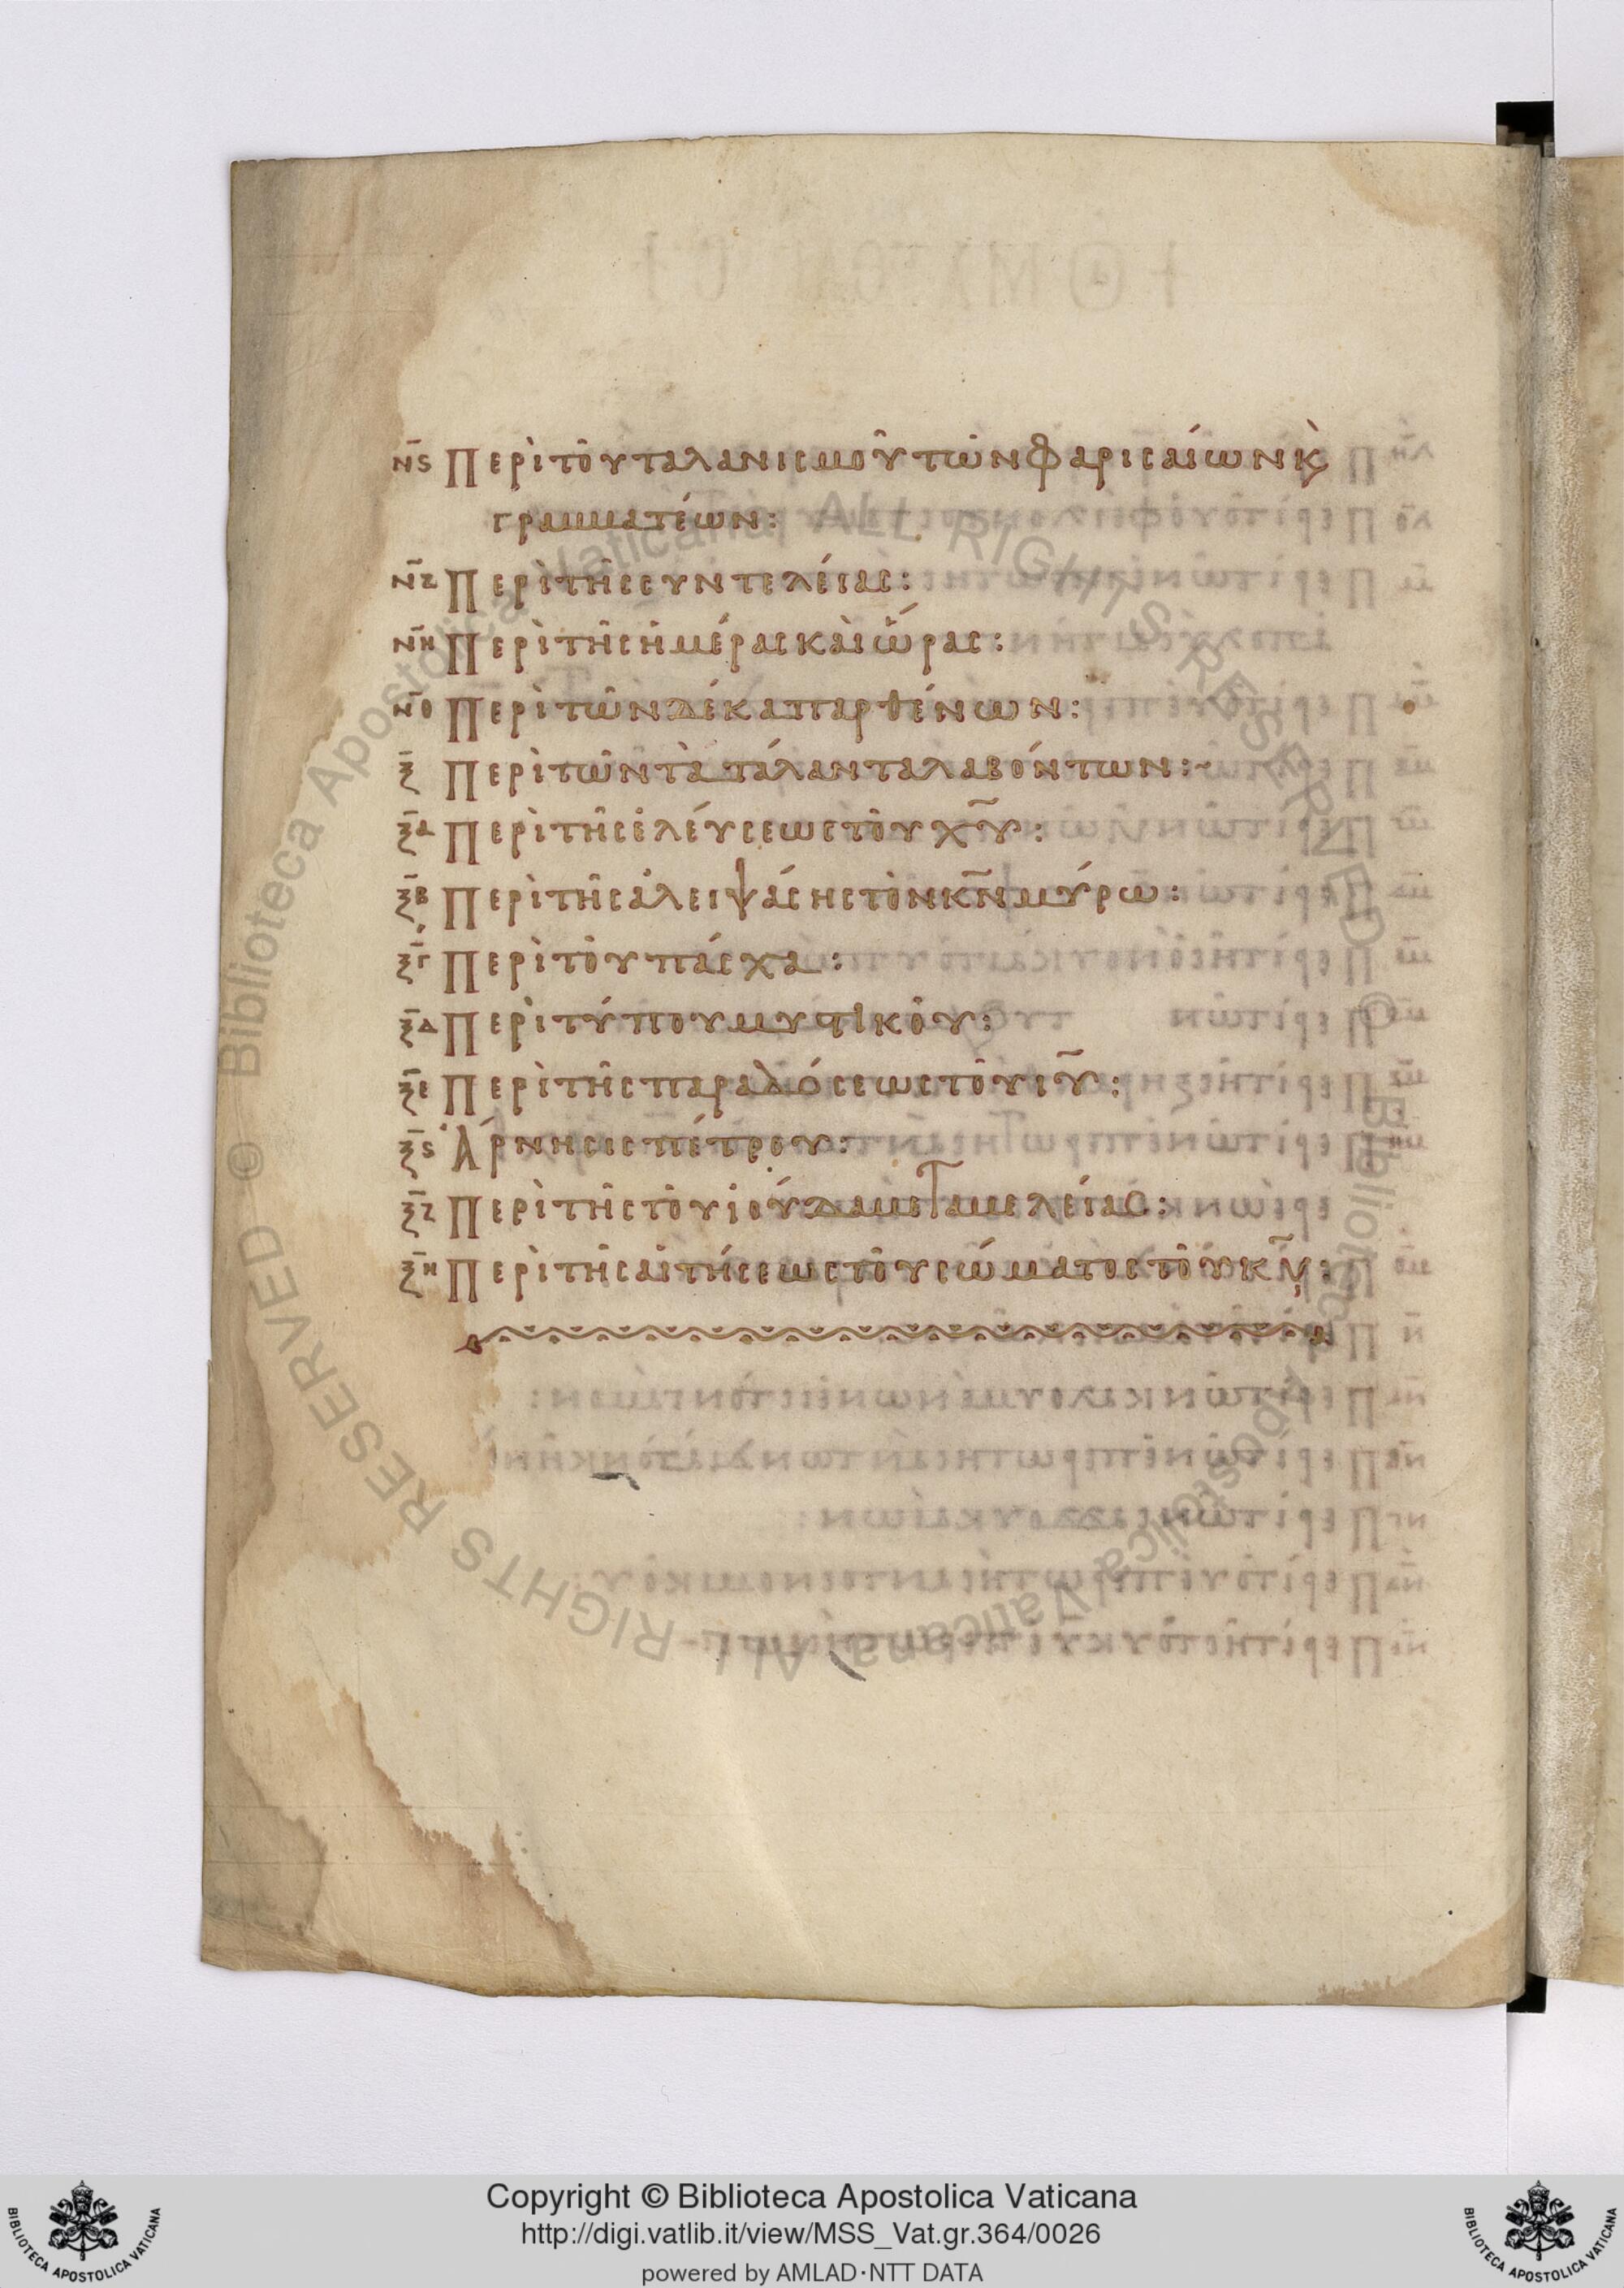 ν̅ϛ Περὶ τοῦ ταλανισμοῦ τῶν Φαρισαίων κ̀
γραμματέων:
ν̅ζ Περὶ τῆς συντελείας:
ν̅η Περὶ τῆς ἡμέρας καὶ ὥρας:
ν̅θ Περὶ τῶν δέκα παρθένων:
ξ̅ Περὶ τῶν τὰ τάλαντα λαβόντων:~
ξ̅α Περὶ τῆς ἐλεύσεως τοῦ χ̅υ̅:
ξ̅β Περὶ τῆς ἀλειψάσης τὸν κ̅ν̅ μύρω:
ξ̅γ Περὶ τοῦ πάσχα:
ξ̅δ Περὶ τύπου μυστικοῦ:
ξ̅ε Περὶ τῆς παραδόσεως τοῦ ι̅υ̅:
ξ̅ϛ Ἄρνησις πέτρου:
ξ̅ζ Περὶ τῆς τοῦ ἰούδα μεταμελείας:
ξ̅η Περὶ τῆς αἰτήσεως τοῦ σώματος τοῦ κ̅υ̅:
Biblioteca Apostolica Vaticana, ALL RIGHTS RESERVED © Biblioteca Apostolica Vaticana, ALL RIGHTS RESERVED ©
Copyright © Biblioteca Apostolica Vaticana
http://digi.vatlib.it/view/MSS_Vat.gr.364/0026
powered by AMLAD·NTT DATA
BIBLIOTECA APOSTOLICA VATICANA
BIBLIOTECA APOSTOLICA VATICANA